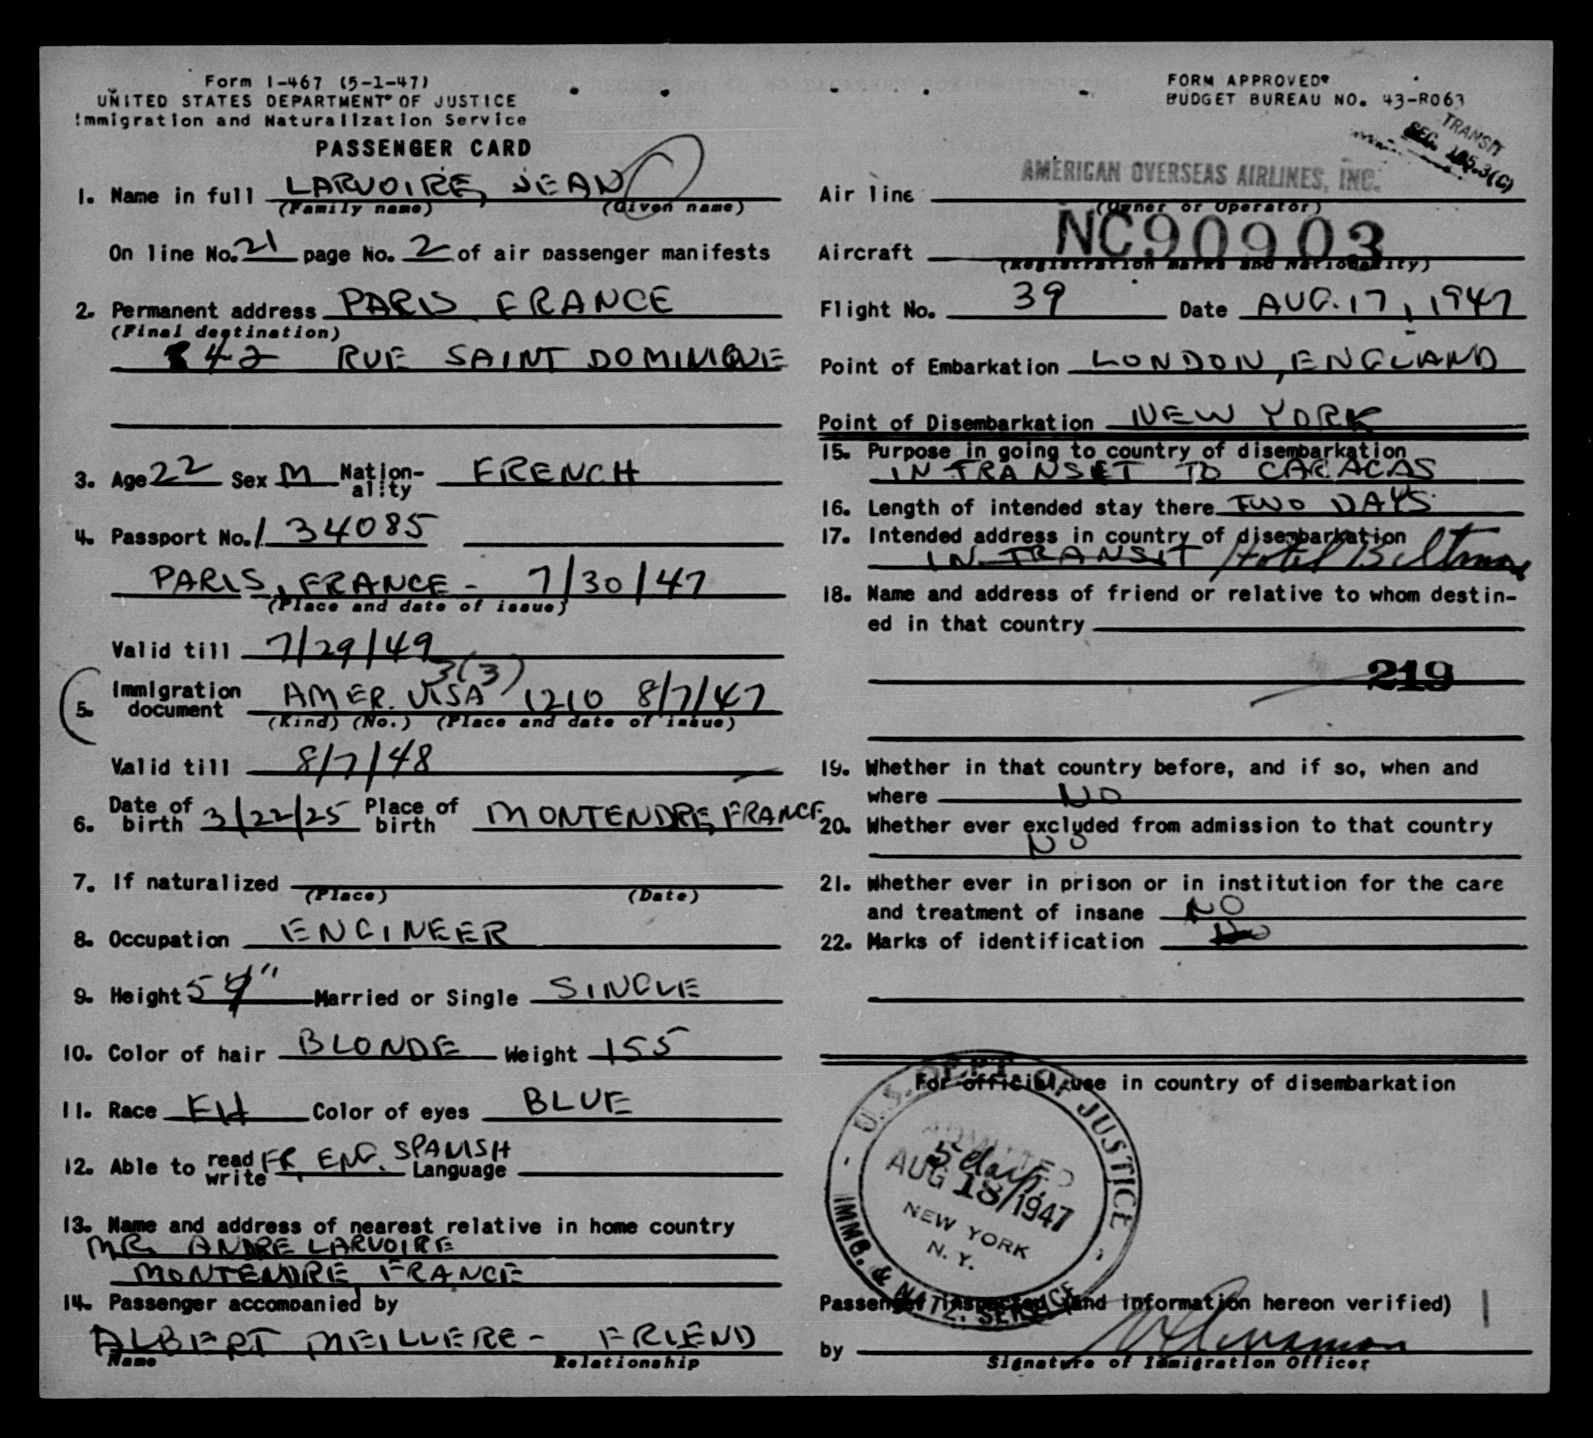 Form I-467 (5-1-47)
UNITED STATES DEPARTMENT OF JUSTICE
Immigration and Naturalization Service
PASSENGER CARD
FORM APPROVED
BUDGET BUREAU NO. 43-R063
TRANSIT
SEC. 3(C)
1. Name in full LARVOIRE, JEAN
(Family name) (Given name)
On line No. 21 page No. 2 of air passenger manifests
2. Permanent address PARIS FRANCE
(Final destination)
42 RUE SAINT DOMINIQUE
3. Age 22 Sex M Nation-ality FRENCH
4. Passport No. 134085
PARIS, FRANCE - 7/30/47
(Place and date of issue)
Valid till 7/29/49
3(3)
5. Immigration document AMER. VISA 1210 8/7/47
(Kind) (No.) (Place and date of issue)
Valid till 8/7/48
6. Date of birth 3/22/25 Place of birth MONTENDRE, FRANCE
7. If naturalized
(Place) (Date)
8. Occupation ENGINEER
9. Height 5 9" Married or Single SINGLE
10. Color of hair BLONDE Weight 155
11. Race FH Color of eyes BLUE
12. Able to read write FR, ENG. SPANISH Language
13. Name and address of nearest relative in home country
MR ANDRE LARVOIRE
MONTENDRE, FRANCE
14. Passenger accompanied by
ALBERT MEILLERE - FRIEND
Name Relationship
Air line AMERICAN OVERSEAS AIRLINES, INC.
(Owner or Operator)
Aircraft NC90903
(Registration marks and Nationality)
Flight No. 39 Date AUG. 17, 1947
Point of Embarkation LONDON, ENGLAND
Point of Disembarkation NEW YORK
15. Purpose in going to country of disembarkation
IN TRANSET TO CARACAS
16. Length of intended stay there TWO DAYS
17. Intended address in country of disembarkation
IN TRANSIT Hotel Biltmore
18. Name and address of friend or relative to whom destin-
ed in that country
219
19. Whether in that country before, and if so, when and
where NO
20. Whether ever excluded from admission to that country
NO
21. Whether ever in prison or in institution for the care
and treatment of insane NO
22. Marks of identification NO
For official use in country of disembarkation
U.S. DEPT. OF JUSTICE
IMMG. & NAT'Z. SERVICE
ADMITTED
5 days
AUG 18 1947
NEW YORK
N. Y.
Passenger inspected (and information hereon verified)
by
Signature of Immigration Officer